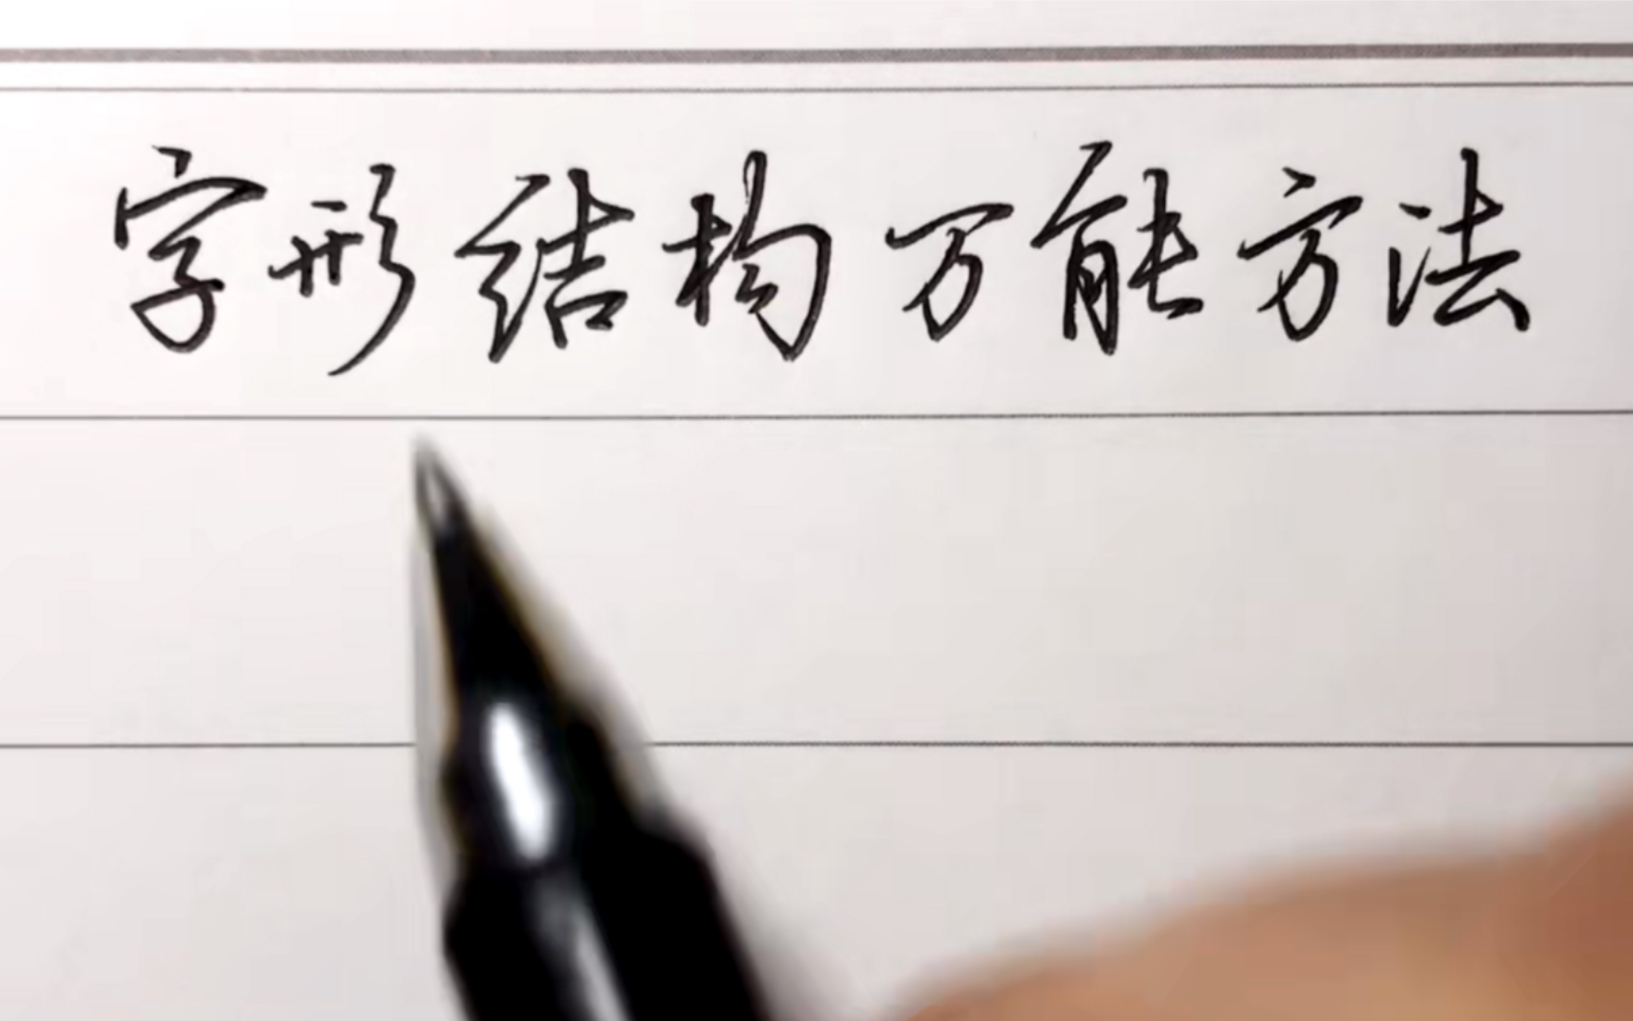 字形结构万能方法